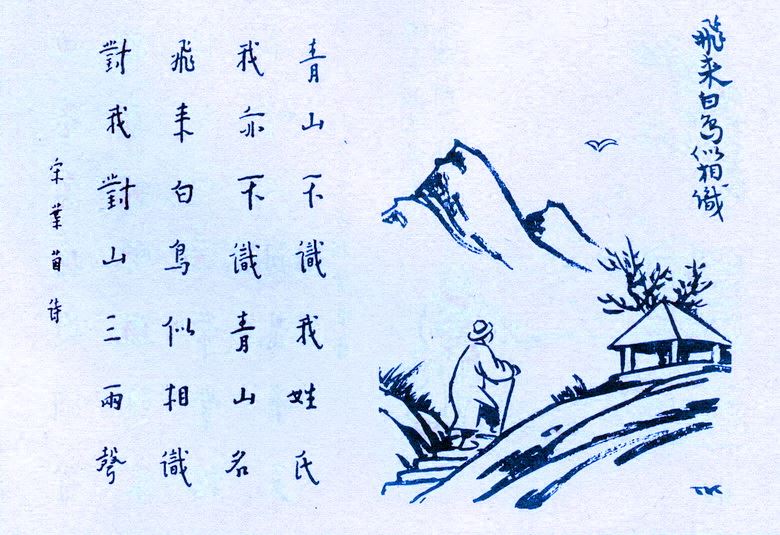 飛来白鳥似相識
青山不識我姓氏
我亦不識青山名
飛来白鳥似相識
對我對山三兩聲
宋葉茵詩
TK